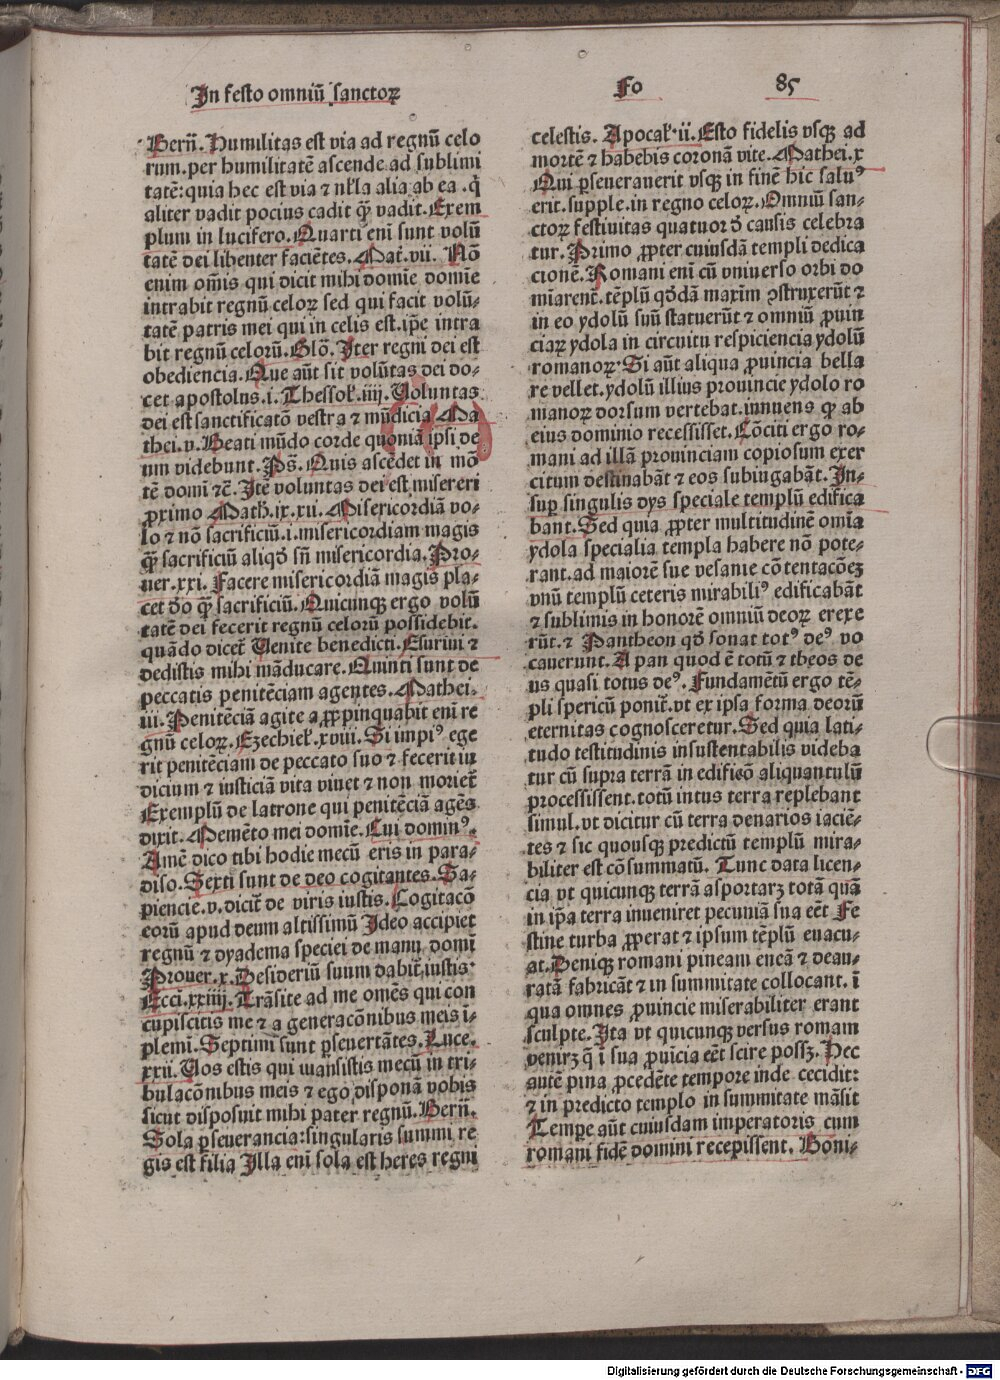 In festo omniū sanctoꝝ
Fo 85
Berñ. Humilitas est via ad regnū celo
rum. per humilitatē ascende ad sublimi
tatē: quia hec est via ⁊ nł̵la alia ab ea. q̇
aliter vadit pocius cadit q̄ꝫ vadit. Exem
plum in lucifero. Quarti eni sunt volū
tatē dei libenter faciētes. Mat̄. vii. Nō
enim om̄is qui dicit mihi domīe domīe
intrabit regnū celoꝝ sed qui facit volū-
tatē patris mei qui in celis est. ip̄e intra
bit regnū celorū. Glō. Iter regni dei est
obediencia. Que aūt sit volūtas dei do-
cet apostolus. i. Thessoł. iiij. Voluntas
dei est sanctificatō vestra ⁊ mūdicia Ma
thei. v. Beati mūdo corde quoniā ipsi de
um videbunt. Pš. Quis ascēdet in mō
tē domī ⁊c̄. Itē voluntas dei est misereri
ꝓximo Math. ix. xii. Misericordiā vo-
lo ⁊ nō sacrificiū. i. misericordiam magis
q̄ꝫ sacrificiū aliqd̄ sn̄ misericordia. Pro-
uer. xxi. Facere misericordiā magis pla-
cet d̄o q̄ꝫ sacrificiū. Quicunqꝫ ergo volū
tatē dei fecerit regnū celorū possidebit.
quādo dicet̄ Venite benedicti. Esuriui ⁊
dedistis mihi māducare. Quinti sunt de
peccatis penitēciam agentes. Mathei.
iii. Penitēciā agite aꝓpinquabit eni re
gnū celoꝝ. Ezechieł. xviii. Si impi⁹ ege
rit penitēciam de peccato suo ⁊ fecerit iu
dicium ⁊ iusticiā vita viuet ⁊ non moriet̄
Exemplū de latrone qui penitēciā agēs
dixit. Memēto mei domīe. Cui domin⁹.
Amē dico tibi hodie mecū eris in para-
diso. Sexti sunt de deo cogitantes. Sa-
piencie. v. dicit̄ de viris iustis. Cogitacō
eorū apud deum altissimū Ideo accipiet
regnū ⁊ dyadema speciei de manu domī
Prouer. x. Desideriū suum dabit̄ iustis
Ecci. xxiiij. Trāsite ad me omēs qui con
cupiscitis me ⁊ a generacōnibus meis ī-
plemī. Septimi sunt ꝑseuerātes. Luce.
xxii. Vos estis qui mansistis mecū in tri-
bulacōnibus meis ⁊ ego disponā vobis
sicut disposuit mihi pater regnū. Berñ.
Sola ꝑseuerancia: singularis summi re
gis est filia Illa eni sola est heres regni
celestis. Apocał. ii. Esto fidelis vsqꝫ ad
mortē ⁊ habebis coronā vite. Mathei. x
Qui ꝑseuerauerit vsqꝫ in finē hic salu⁹
erit. supple. in regno celoꝝ. Omniū san-
ctoꝝ festiuitas quatuor d̄ causis celebra
tur. Primo ꝓpter cuiusdā templi dedica
cionē. Romani eni cū vniuerso orbi do
mīarent̄. tēplū qd̄dā maxīm ꝯstruxerūt ⁊
in eo ydolū suū statuerūt ⁊ omniū ꝓuin
ciaꝝ ydola in circuitu respiciencia ydolū
romanoꝝ. Si aūt aliqua ꝓuincia bella
re vellet. ydolū illius prouincie ydolo ro
manoꝝ dorsum vertebat. innuens ꝙ ab
eius dominio recessisset. Cōciti ergo ro-
mani ad illā prouinciam copiosum exer
citum destinabāt ⁊ eos subiugabāt. In-
suꝑ singulis dys speciale templū edifica
bant. Sed quia ꝓpter multitudinē omīa
ydola specialia templa habere nō pote-
rant. ad maiorē sue vesanie cōtentacōeꝫ
vnū templū ceteris mirabili⁹ edificabāt
⁊ sublimis in honorē omniū deoꝝ erexe
rūt. ⁊ Pantheon qd̄ sonat tot⁹ de⁹ vo
cauerunt. A pan quod ē totū ⁊ theos de
us quasi totus de⁹. Fundamētū ergo tē-
pli spericū ponit̄. vt ex ipsa forma deorū
eternitas cognosceretur. Sed quia lati-
tudo testitudinis insustentabilis videba
tur cū supra terrā in edificō aliquantulū
processissent. totū intus terra replebant
simul. vt dicitur cū terra denarios iaciē-
tes ⁊ sic quousqꝫ predictū templū mira-
biliter est cōsummatū. Tunc data licen-
cia vt quicunqꝫ terrā asportarꝫ totā quā
in ip̄a terra inueniret pecuniā sua eēt Fe
stine turba ꝓperat ⁊ ipsum tēplū euacu-
at. Deniqꝫ romani pineam eneā ⁊ deau-
ratā fabricāt ⁊ in summitate collocant. ī
qua omnes ꝓuincie miserabiliter erant
sculpte. Ita vt quicunqꝫ versus romam
venirꝫ q̄ ī sua ꝓuīcia eēt scire possꝫ. Hec
autē pina ꝓcedēte tempore inde cecidit:
⁊ in predicto templo in summitate māsit
Tempe aūt cuiusdam imperatoris cum
romani fidē domini recepissent. Boni-
Digitalisierung gefördert durch die Deutsche Forschungsgemeinschaft - DFG